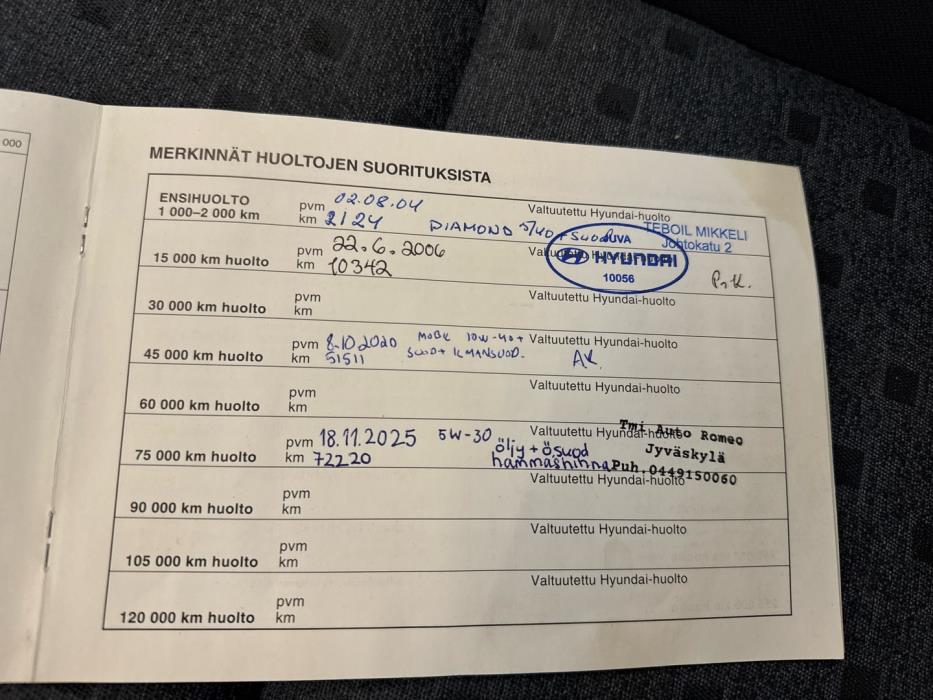 000
MERKINNÄT HUOLTOJEN SUORITUKSISTA
ENSIHUOLTO
1 000–2 000 km
pvm 02.08.04
km 2124
DIAMOND 5/40 + SUOD
Valtuutettu Hyundai-huolto
TEBOIL MIKKELI
Johtokatu 2
15 000 km huolto
pvm 22.6.2006
km 10342
HYUNDAI
10056
P.K.
30 000 km huolto
pvm
km
Valtuutettu Hyundai-huolto
45 000 km huolto
pvm 8.10.2020
km 51511
MOBIL 10W-40+
SUOD+ ILMANSUOD.
Valtuutettu Hyundai-huolto
AK.
60 000 km huolto
pvm
km
Valtuutettu Hyundai-huolto
75 000 km huolto
pvm 18.11.2025
km 72220
5W-30
öljy + ö.suod
hammashihna
Valtuutettu Hyundai-huolto
Tmi Auto Romeo
Jyväskylä
Puh.0449150060
90 000 km huolto
pvm
km
Valtuutettu Hyundai-huolto
105 000 km huolto
pvm
km
Valtuutettu Hyundai-huolto
120 000 km huolto
pvm
km
Valtuutettu Hyundai-huolto